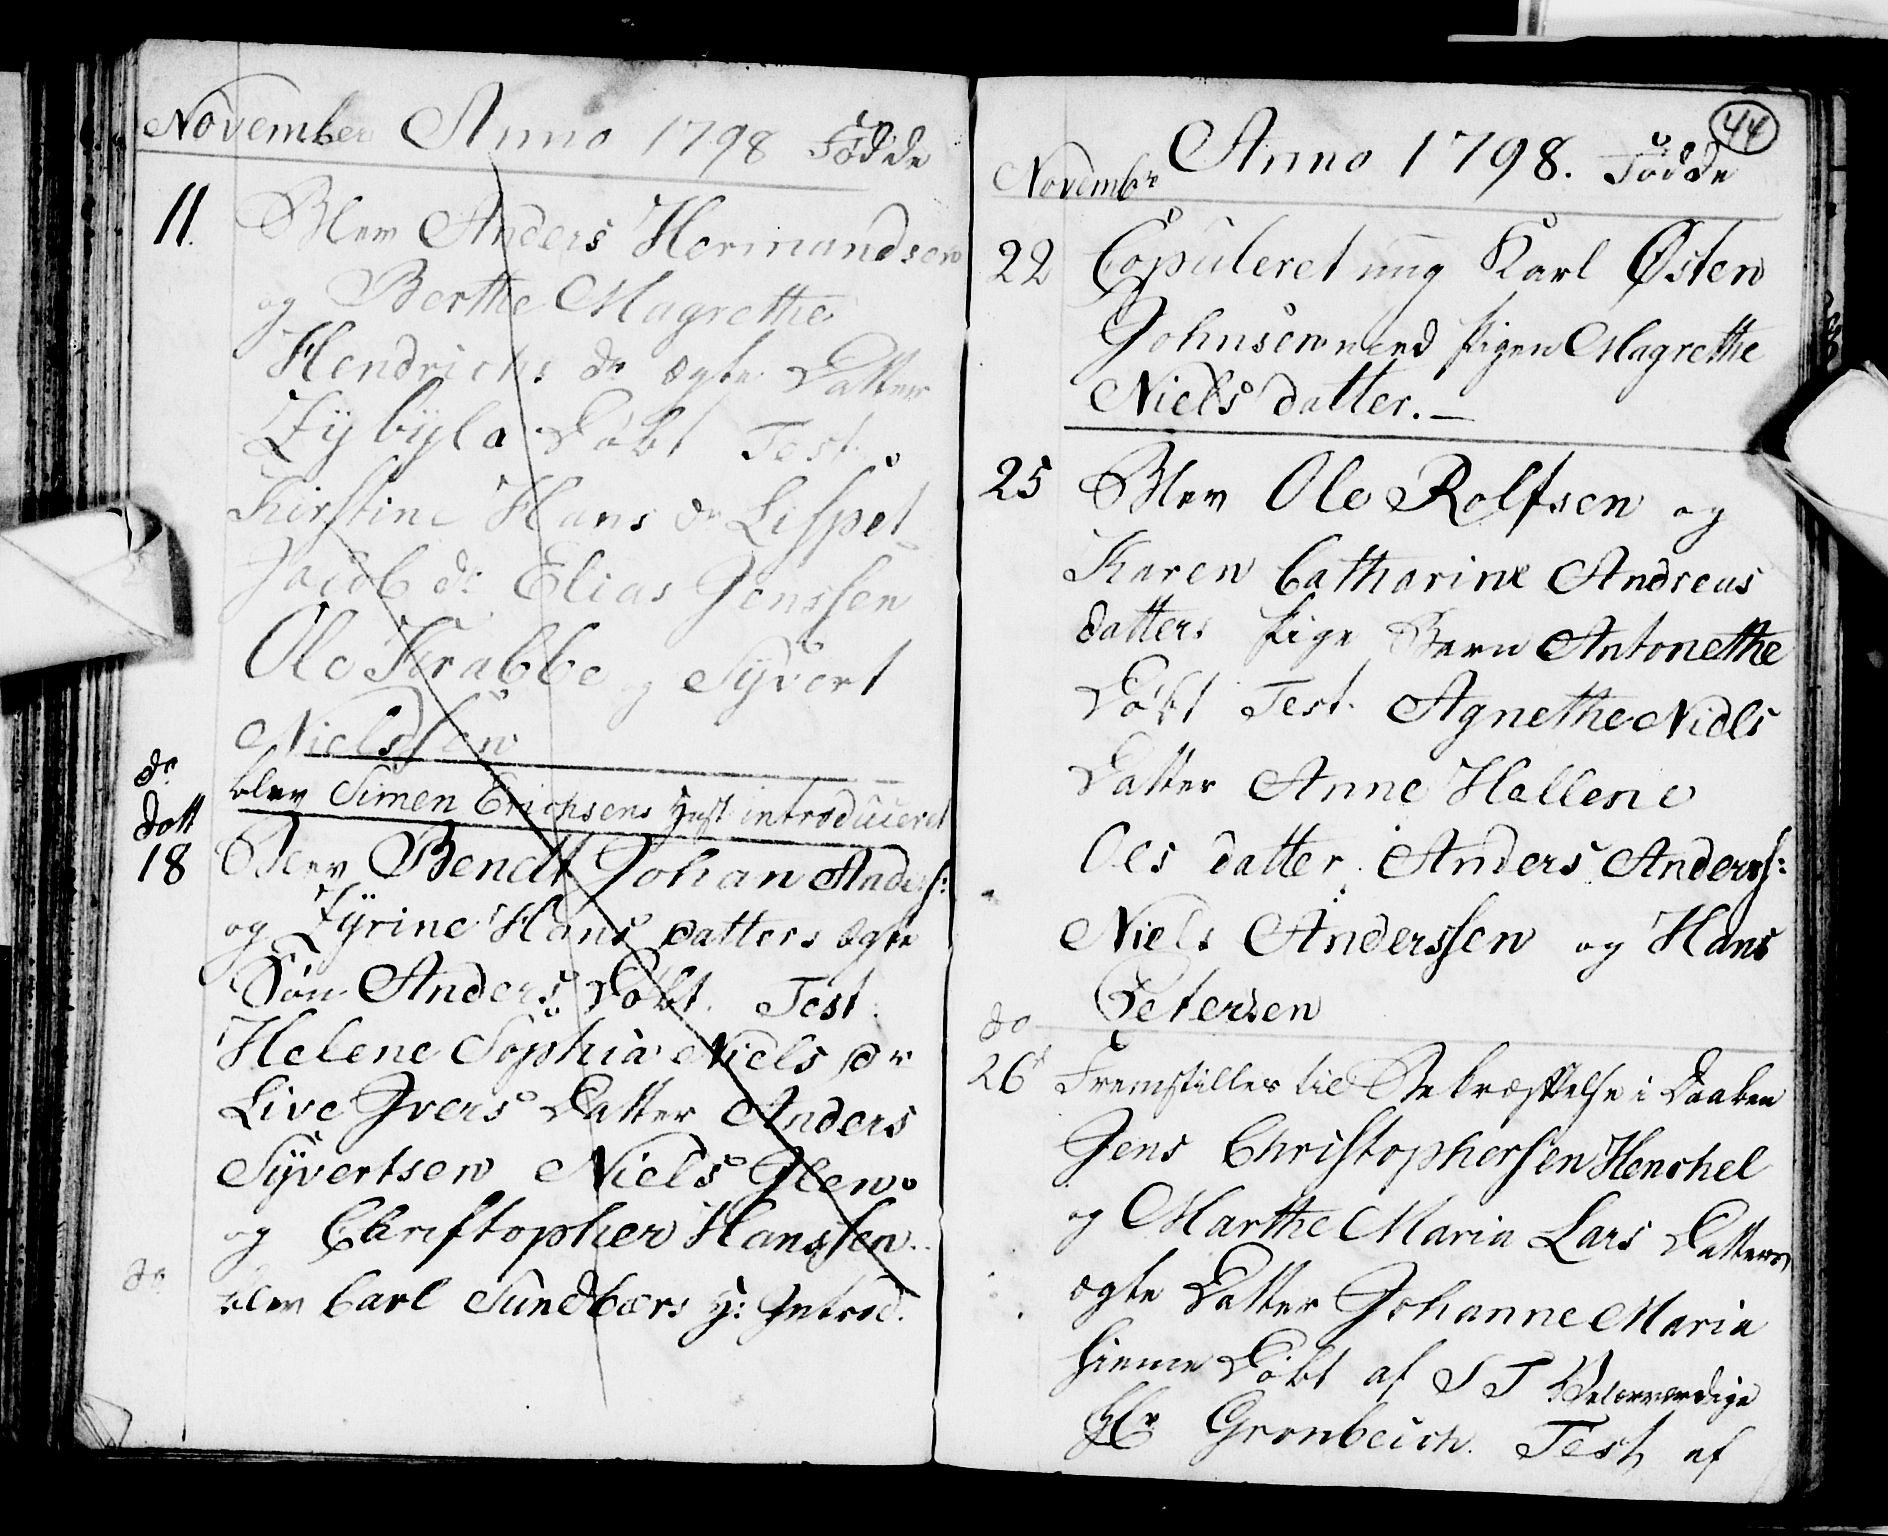 November Anno 1798 Fødde
11. Blev Anders Hermandsen
og Berthe Magrethe
Hendrichs dr ægte Datter
Zybyla Døbt Test.
Kirstine Hans dr Lispet
Jacob dr Elias Jenssen
Ole Krabbe og Syvert
Nielssen
do blev Simen Erichsens hust introduceret
datt
18 Blev Bendt Johan Anders:
og Zyrine Hans datters ægte
Søn Anders Døbt. Test:
Helene Sophia Niels dr
Live Ivers Datter Anders
Syvertsen Niels Glewo
og Christopher Hanssen.
do blev Carl Sundbærs h: Introd.
44
Novembr Anno 1798. Fødde
22 Copuleret ung Karl Østen
Johnsen med pigen Magrethe
Niels datter. —
25 Blev Ole Rolfsen og
Karen Catharine Andreas
datters pige Barn Antonethe
Døbt Test. Agnethe Niels
Datter Anne Hellene
Oles datter Anders Anderss:
Niels Anderssen og Hans
Petersen
do
26 Fremstilles til Bekræftelse i Daaben
Jens Christophersen Henchel
og Marthe Maria Lars Datters
ægte Datter Johanne Maria
hiemme Døbt af S T Velærværdige
Hr Gronbeich. Test, af